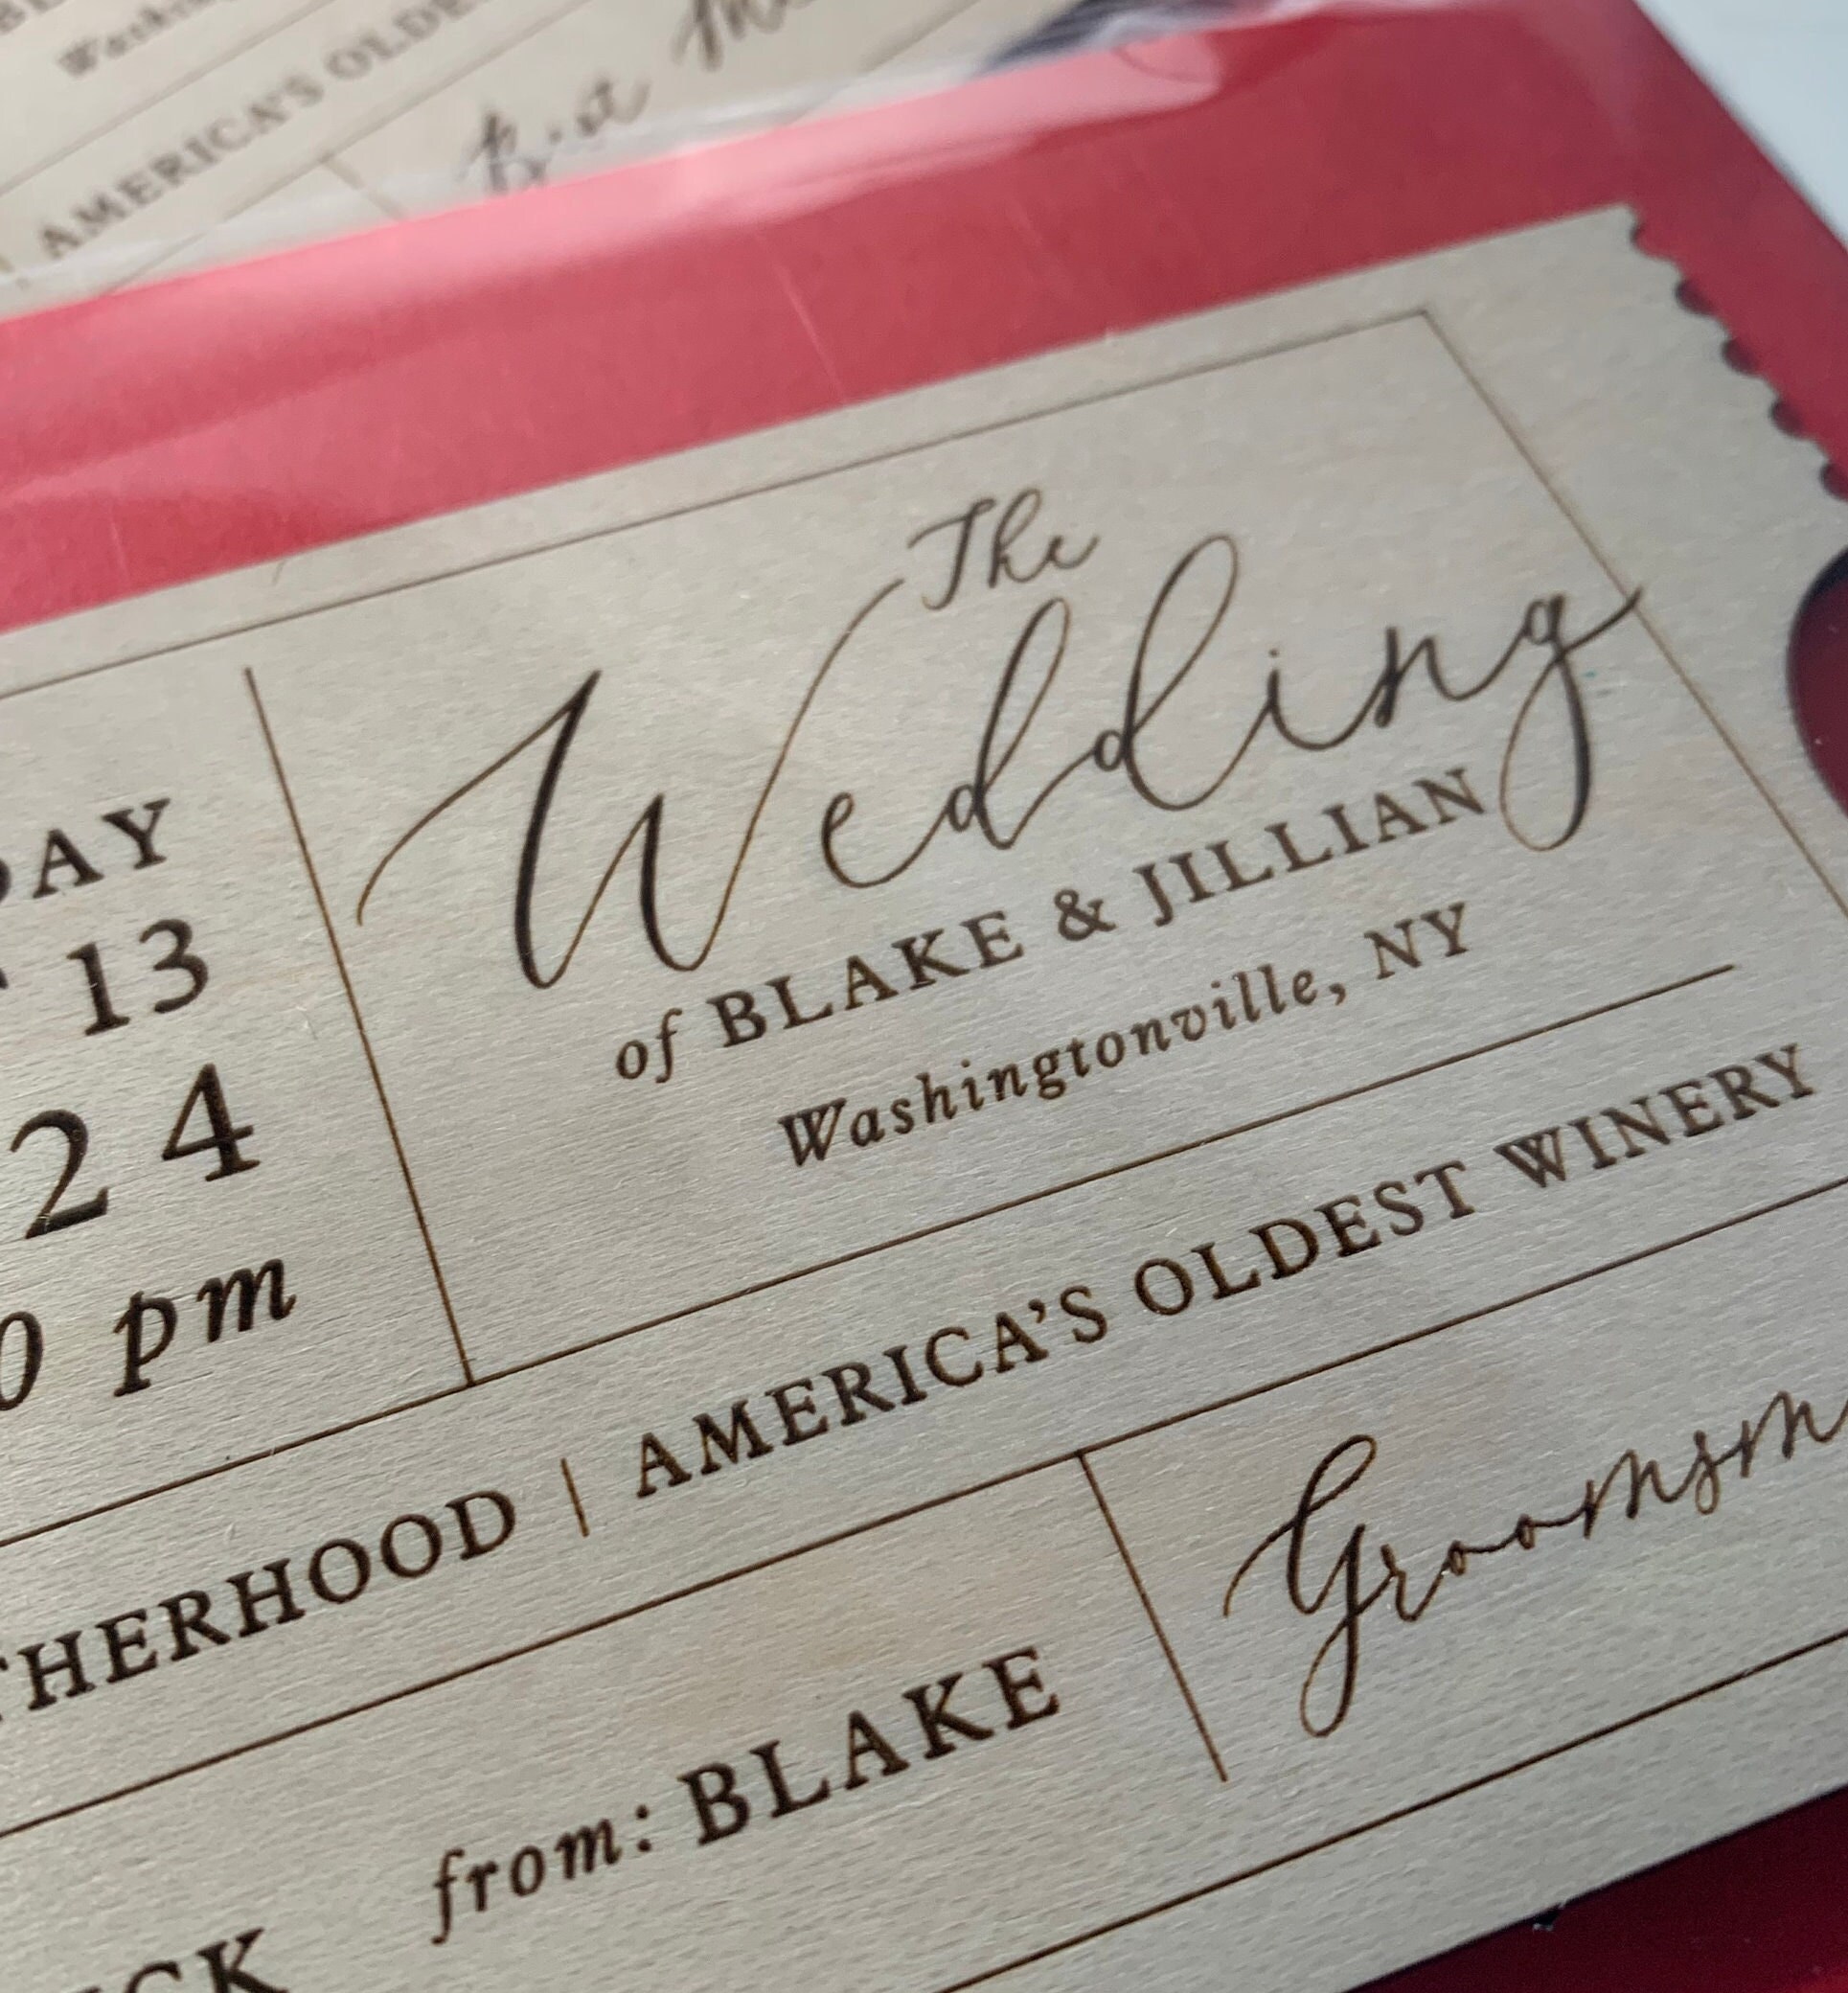 AMERICA'S OLDE
The
Wedding
of BLAKE & JILLIAN
Washingtonville, NY
DAY
13
24
0 pm
THERHOOD | AMERICA'S OLDEST WINERY
from: BLAKE
Groomsm
CK